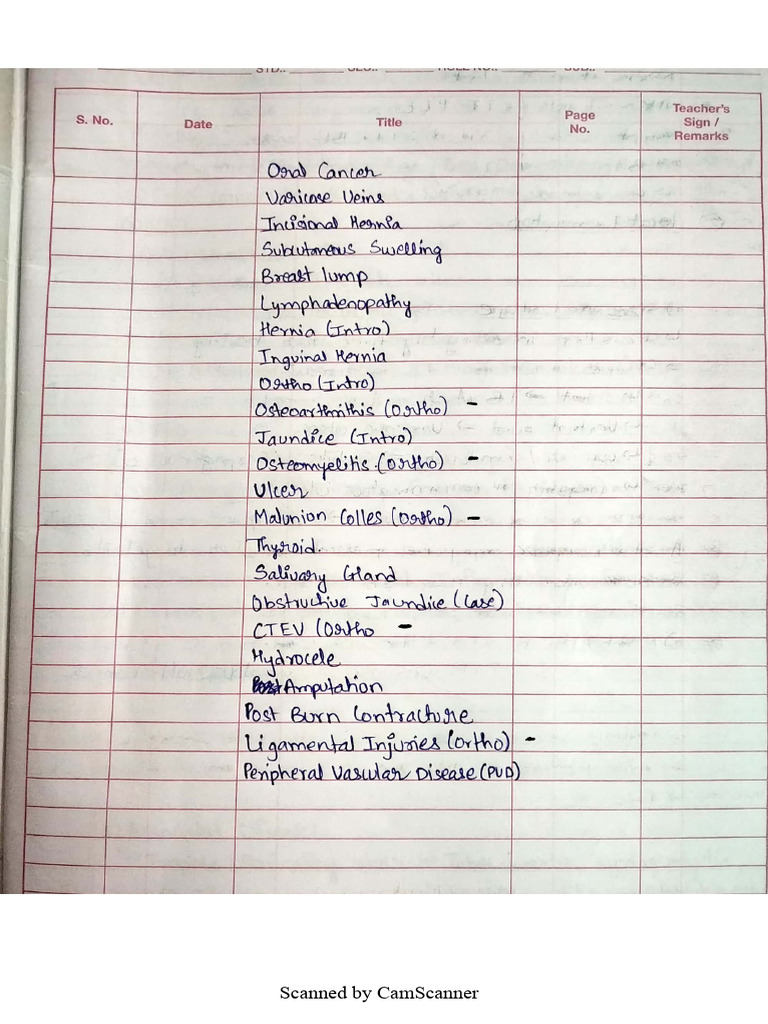 STD.: SEC.: ROLL NO.: SUB.:
S. No. Date Title Page No. Teacher's Sign / Remarks
Oral Cancer
Varicose Veins
Incisional Hernia
Subcutaneous Swelling
Breast lump
Lymphadenopathy
Hernia (Intro)
Inguinal Hernia
Ortho (Intro)
Osteoarthithis (Ortho) -
Jaundice (Intro)
Osteomyelitis. (Ortho) -
Ulcer
Malunion Colles (Ortho) -
Thyroid.
Salivary Gland
Obstructive Jaundice (Case)
CTEV (Ortho -
Hydrocele
Amputation
Post Burn Contracture
Ligamental Injuries (Ortho) -
Peripheral Vascular Disease (PVD)
Scanned by CamScanner